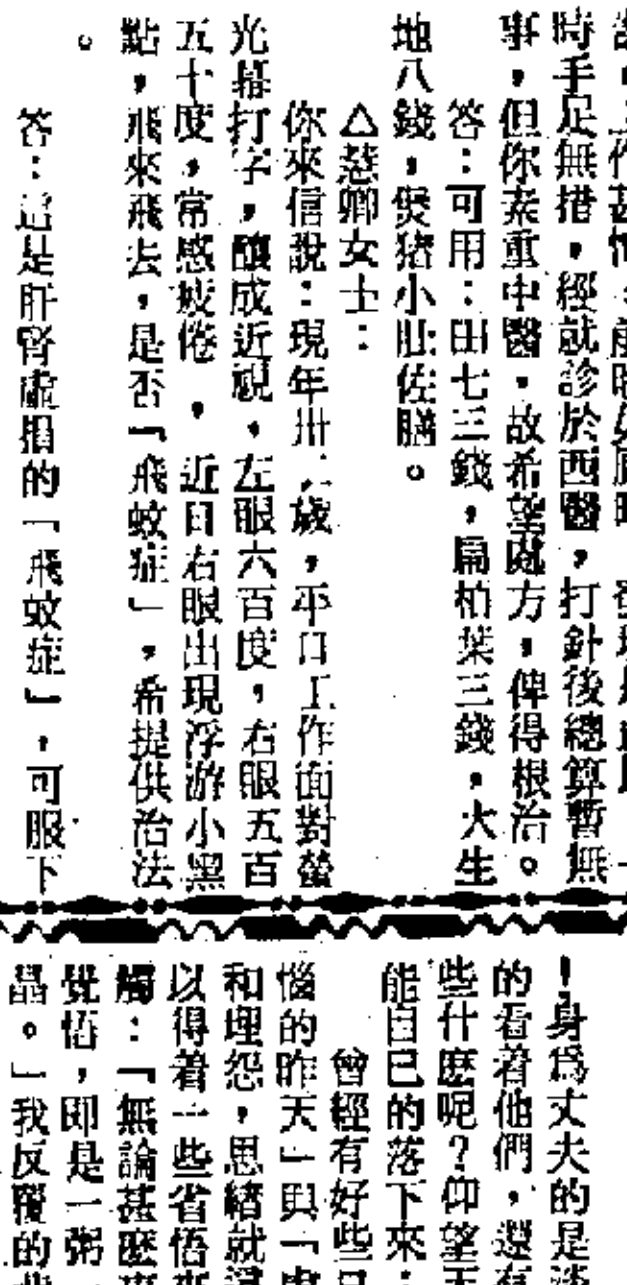 時手足無措，經就診於西醫，打針後總算暫無
事，但你素重中醫，故希望處方，俾得根治。
答：可用：田七三錢，扁柏葉三錢，大生
地八錢，煲猪小肚佐膳。
△慈卿女士：
你來信說：現年卅歲，平日工作面對螢
光幕打字，釀成近視，左眼六百度，右眼五百
五十度，常感疲倦，近日右眼出現浮游小黑
點，飛來飛去，是否「飛蚊症」，希提供治法
。
答：這是肝腎虛損的「飛蚊症」，可服下
！身爲丈夫的是
的看着他們，還
些什麽呢？仰望
能自已的落下來
曾經有好些
惱的昨天」與「
和埋怨，思緒就
以得着一些省悟
觸：「無論甚麽
覺悟，卽是一
晶。」我反覆的